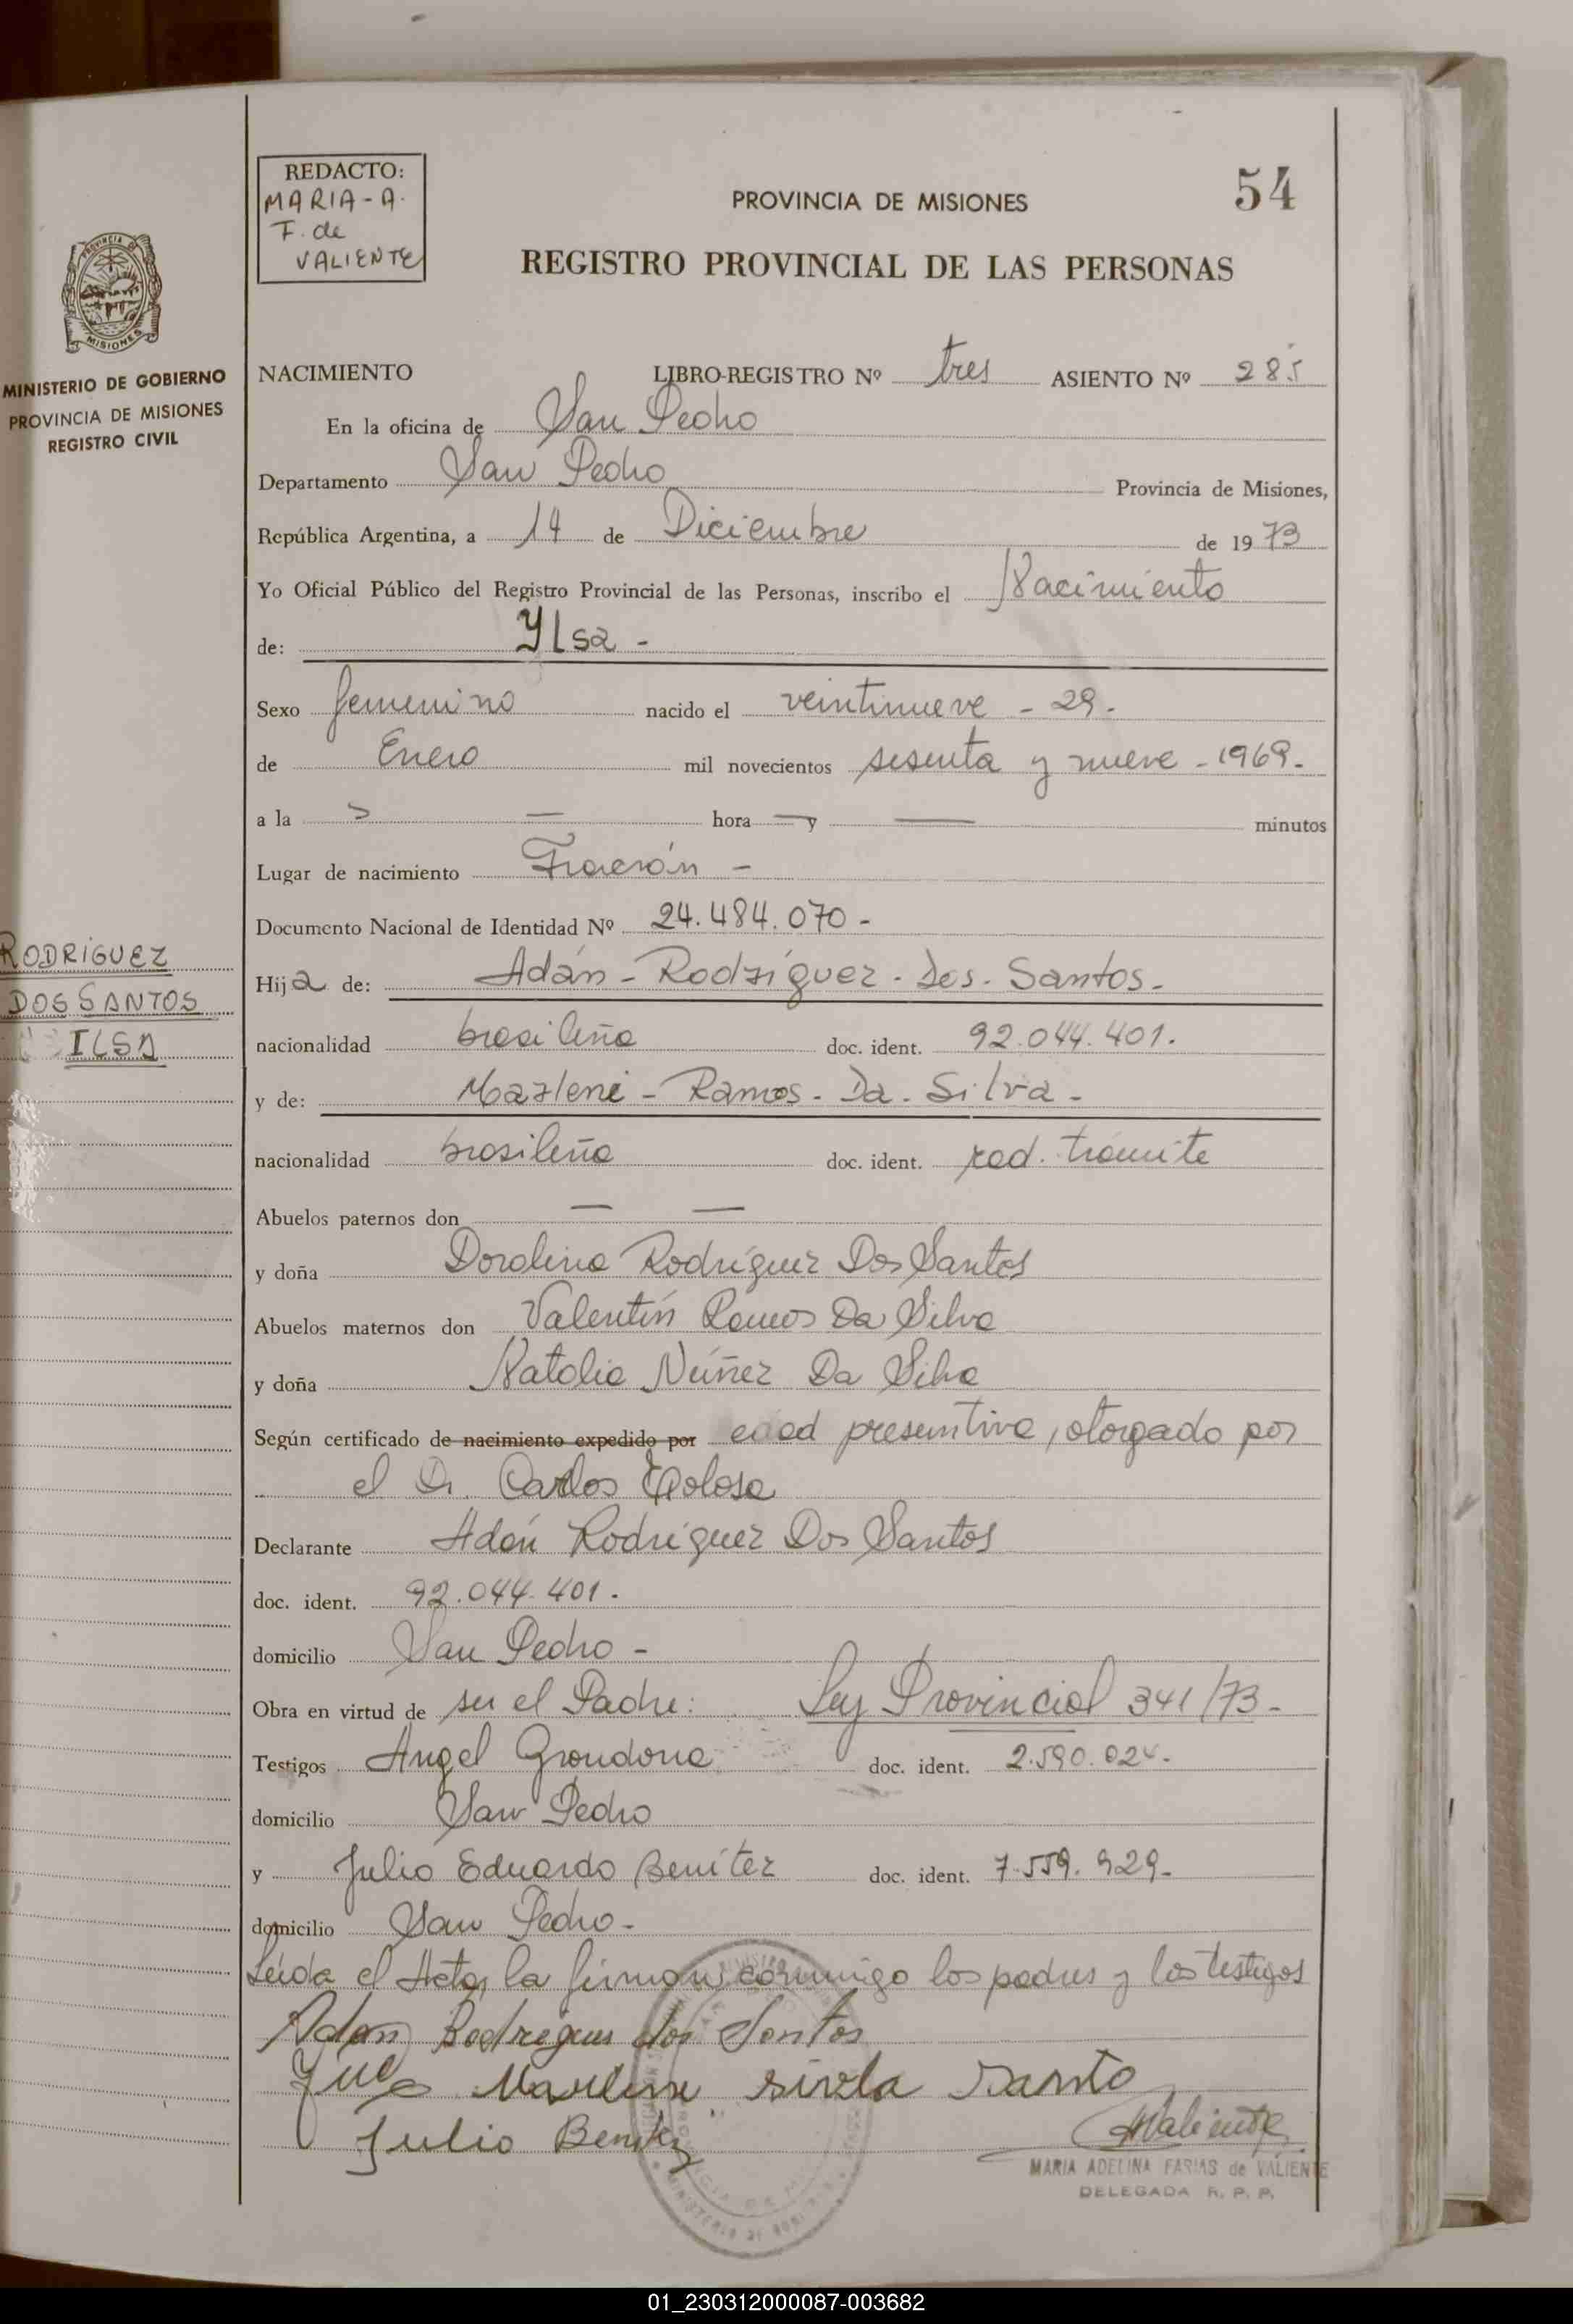 REDACTO:
MARIA-A.
F. de
VALIENTE
PROVINCIA DE MISIONES
54
REGISTRO PROVINCIAL DE LAS PERSONAS
PROVINCIA DE
MISIONES
MINISTERIO DE GOBIERNO
PROVINCIA DE MISIONES
REGISTRO CIVIL
NACIMIENTO LIBRO-REGISTRO Nº tres ASIENTO Nº 285
En la oficina de San Pedro
Departamento San Pedro Provincia de Misiones,
República Argentina, a 14 de Diciembre de 1973
Yo Oficial Público del Registro Provincial de las Personas, inscribo el Nacimiento
de: Ylsa -
Sexo femenino nacido el veintinueve - 29 -
de Enero mil novecientos sesenta y nueve - 1969 -
a la — hora — y — minutos
Lugar de nacimiento Fracrán -
Documento Nacional de Identidad Nº 24.484.070 -
RODRIGUEZ
DOS SANTOS
ILSA
Hija de: Adán - Rodríguez - Dos - Santos -
nacionalidad brasileña doc. ident. 92.044.401.
y de: Marlene - Ramos - Da - Silva -
nacionalidad brasileña doc. ident. rad. trámite
Abuelos paternos don — —
y doña Dorolina Rodríguez Dos Santos
Abuelos maternos don Valentín Ramos Da Silva
y doña Natalia Núñez Da Silva
Según certificado de nacimiento expedido por edad presuntiva, otorgado por
el Dr. Carlos Tolosa
Declarante Adán Rodríguez Dos Santos
doc. ident. 92.044.401.
domicilio San Pedro -
Obra en virtud de ser el Padre: Ley Provincial 341/73 -
Testigos Angel Grondona doc. ident. 2.590.024 -
domicilio San Pedro
y Julio Eduardo Benítez doc. ident. 7.559.929 -
domicilio San Pedro -
Leída el Acta, la firman conmigo los padres y los testigos
Adan Rodrigues dos Santos
Marlene sirla Santo
Julio Benitez
MARIA ADELINA FARIAS de VALIENTE
DELEGADA R. P. P.
01_230312000087-003682